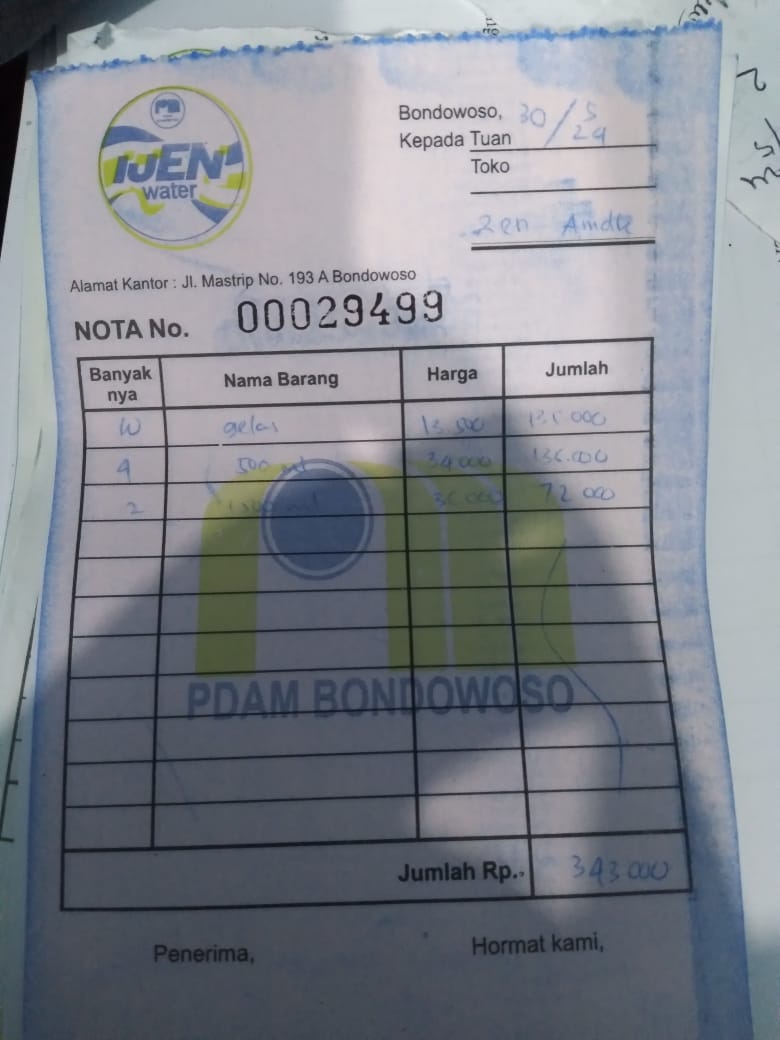 IJEN
water
Bondowoso, 30/5 24
Kepada Tuan
Toko
Alamat Kantor : Jl. Mastrip No. 193 A Bondowoso
NOTA No. 00029499
Banyak nya Nama Barang Harga Jumlah
10 gelas 13.500 135.000
4 500 ml 34.000 136.000
2 1500 ml 36.000 72.000
PDAM BONDOWOSO
Jumlah Rp.. 343.000
Penerima, Hormat kami,